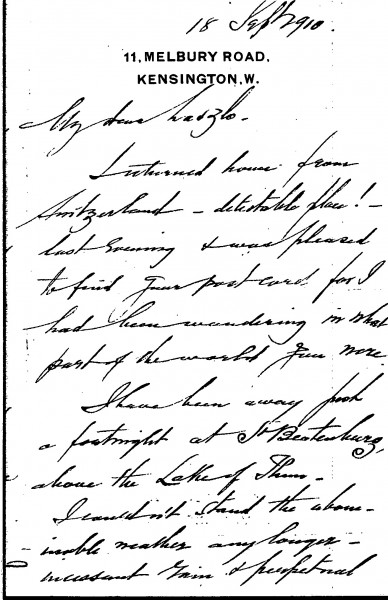 18 Sept 1910.
11, MELBURY ROAD,
KENSINGTON, W.
My dear Laszlo.
I returned home from
Switzerland – detestable place! –
last evening & was pleased
to find your post card for I
had been wondering in what
part of the world you were.
I have been away just
a fortnight at St Beatenburg,
above the Lake of Thun.
I couldn't stand the abom-
inable weather any longer –
incessant rain & perpetual